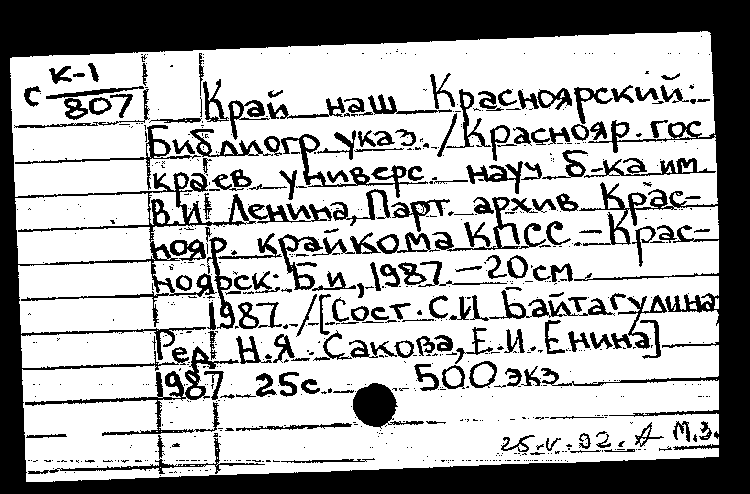 С К-1
807
Край наш Красноярский:
Библиогр. указ. /Краснояр. гос.
краев. универс. науч. б-ка им.
В.И. Ленина, Парт. архив Крас-
нояр. крайкома КПСС. – Крас-
ноярск: Б.и., 1987. – 20см.
1987. /[Сост. С.И. Байтагулина,
Ред. Н.Я. Сакова, Е.И. Енина]
1987. 25с. 500 экз
25.V.92. А М.З.